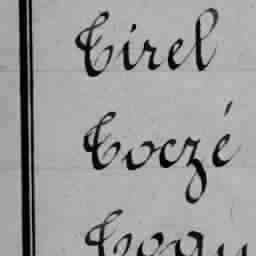 Tirel
Toczé